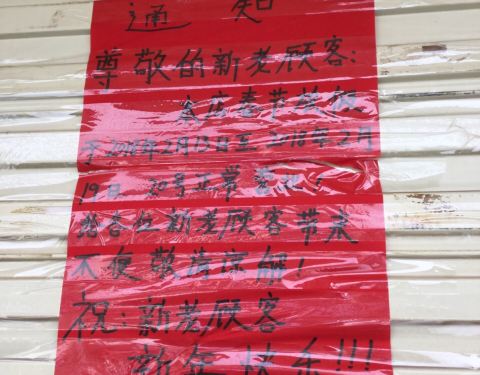 通知
尊敬的新老顾客:
本店春节放假
于2018年2月13日至2018年2月
19日 20号正常营业!
新老顾客带来
不便敬请谅解!
祝:新老顾客
新年快乐!!!